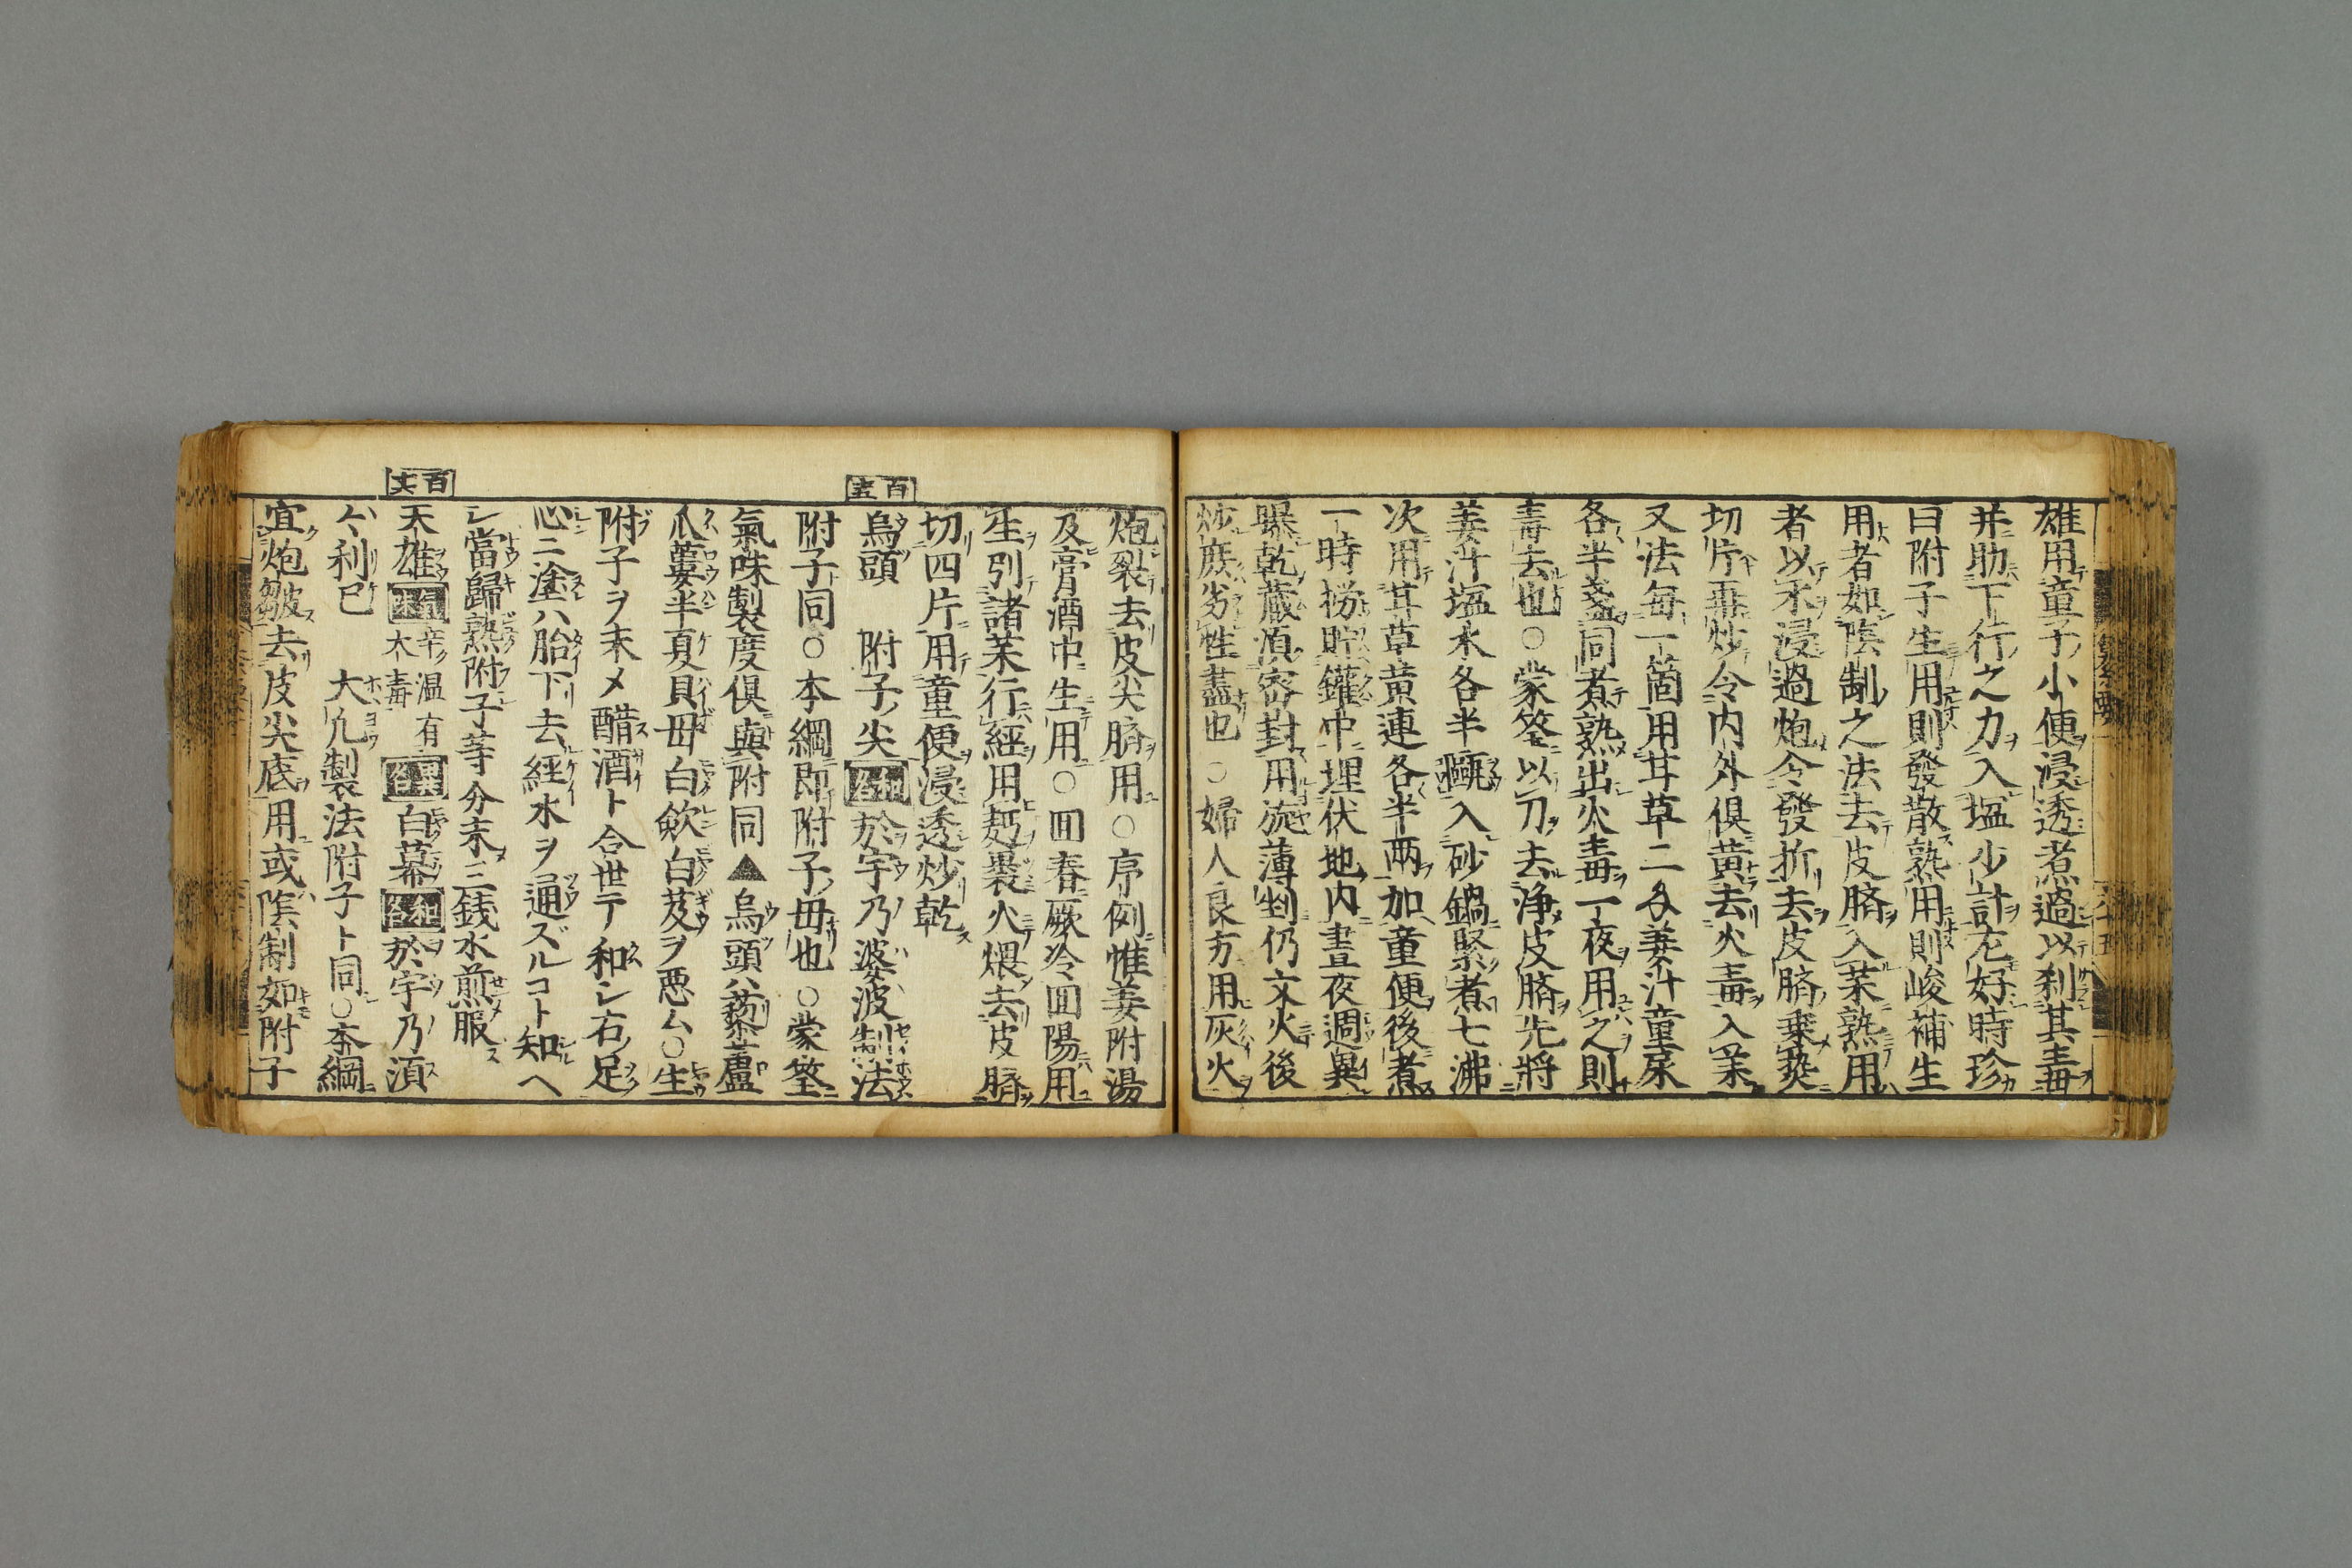 雄用童子小便浸透煮過以刹其毒
并助下行之力入塩少許尤好時珍
曰附子生用則發散熟用則峻補生
用者如陰制之法去皮臍入茱熟用
者以水浸過炮令發折去皮臍乗𤍠
切片再炒令内外俱黄去火毒入茱
又法毎一箇用甘草二戔姜汁童尿
各半盞同煮熟出火毒一夜用之則
毒去也○蒙筌以刀去浄皮臍先將
姜汁塩水各半甌入砂鍋緊煮七沸
次用甘草黄連各半兩加童便後煮
一時撈貯鑵中埋伏地内晝夜週異
曝乾藏湏密封用旋薄剉仍文火後
炒庶劣性盡也○婦人良方用灰火
炮裂去皮尖臍用○序例惟姜附湯
及膏酒中生用○囬春厥冷囬陽用
生引諸茱行經用麪褁火煨去皮臍
切四片用童便浸透炒乾
百五
烏頭 附子尖 於宇乃婆波制法
附子同○本綱即附子母也○蒙筌
氣味製度俱與附同▲烏頭ハ藜蘆
瓜蔞半夏貝母白歛白芨ヲ悪ム○生
附子ヲ末メ醋酒ト合世テ和シ右足
心ニ塗ハ胎下去経水ヲ通ズルコト知ヘ
シ當歸熟附子等分末三銭水煎服
百六
天雄 氣味 辛温有大毒 異名 白幕 和名 於宇乃湏
ム利已 大凢製法附子ト同○本綱
宜炮皺去皮尖底用或陰制如附子